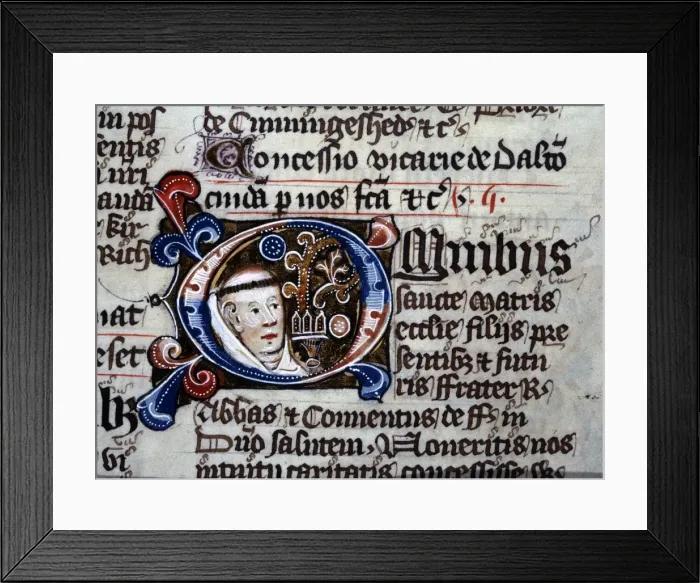 in pos
entis
Rich
nat
eset
bꝫ
vi
de Cuningeshed' ⁊ c'
Concessio vicarie de Daltō
cuidā p nos fcā ⁊ c'
Omnibus
sancte Matris
ecclie filijs pre
sentibꝫ ⁊ futu
ris Frater R
Abbas ⁊ Conuentus de ff in
Dn̄o salutem. Noueritis nos
intuitu caritatis concessisse